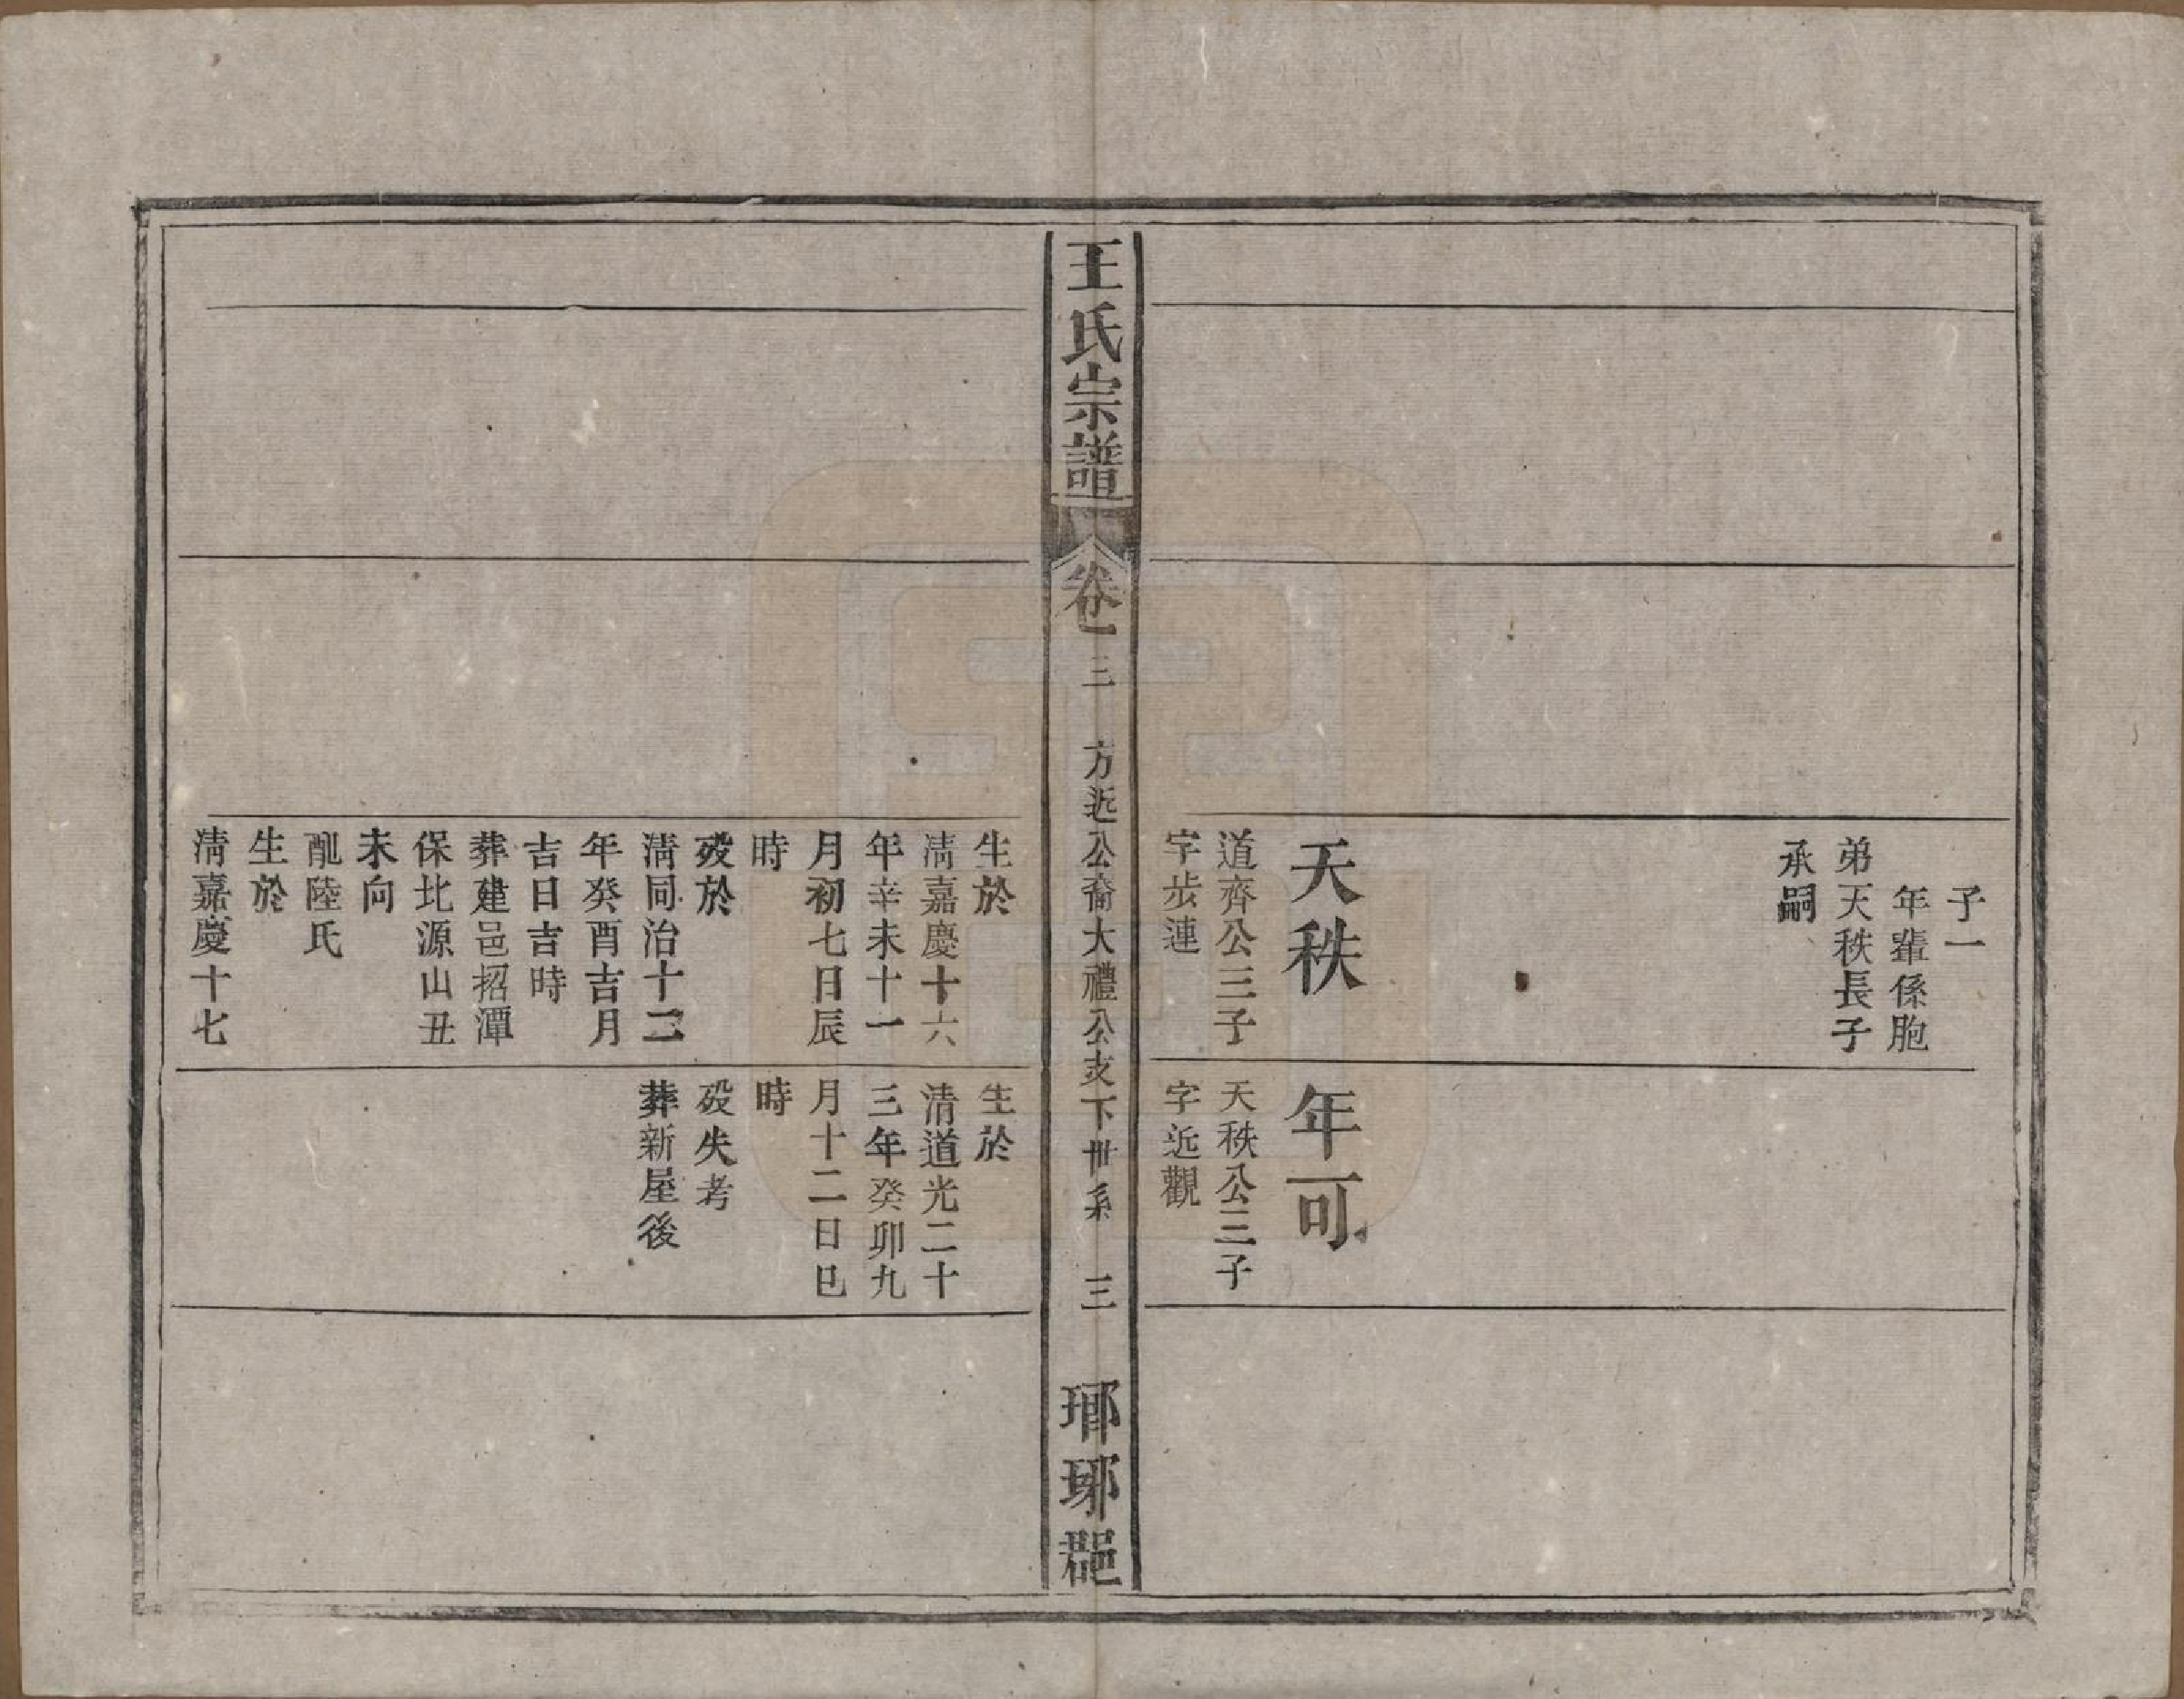 子一
年輩係胞
弟天秩長子
承嗣
天秩
道齊公三子
字步連
年可
天秩公三子
字近觀
王氏宗譜
卷一
三
方近公裔大禮公支下世系
三
瑯琊郡
生於
清嘉慶十六
年辛未十一
月初七日辰
時
殁於
清同治十二
年癸酉吉月
吉日吉時
葬建邑招潭
保北源山丑
未向
配陸氏
生於
清嘉慶十七
生於
清道光二十
三年癸卯九
月十二日巳
時
殁失考
葬新屋後